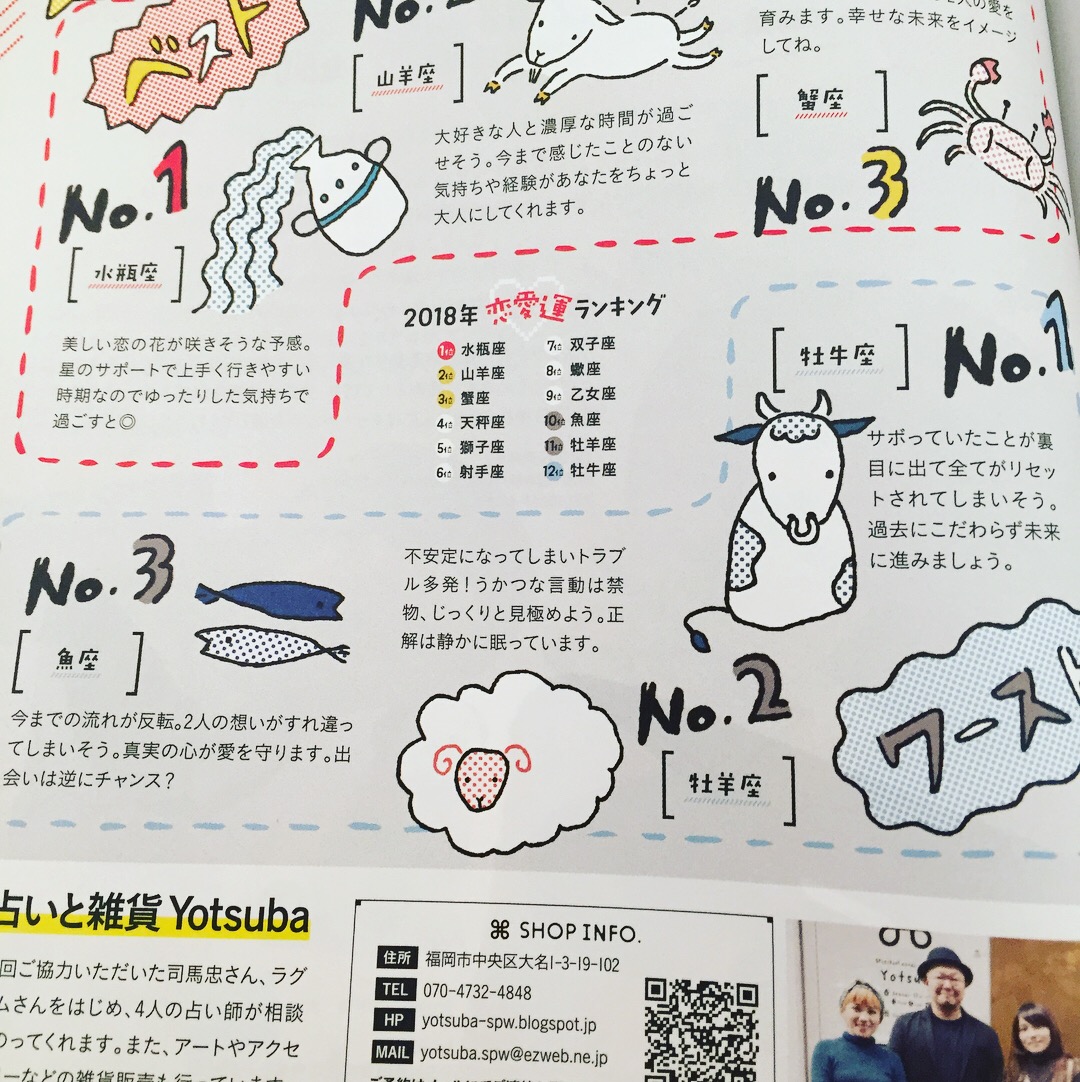 ベスト
No.1
[水瓶座]
美しい恋の花が咲きそうな予感。
星のサポートで上手く行きやすい
時期なのでゆったりした気持ちで
過ごすと◎
[山羊座]
大好きな人と濃厚な時間が過ご
せそう。今まで感じたことのない
気持ちや経験があなたをちょっと
大人にしてくれます。
育みます。幸せな未来をイメージ
してね。
[蟹座]
No.3
2018年恋愛運ランキング
1位 水瓶座
2位 山羊座
3位 蟹座
4位 天秤座
5位 獅子座
6位 射手座
7位 双子座
8位 蠍座
9位 乙女座
10位 魚座
11位 牡羊座
12位 牡牛座
[牡牛座]
No.1
サボっていたことが裏
目に出て全てがリセッ
トされてしまいそう。
過去にこだわらず未来
に進みましょう。
No.3
[魚座]
今までの流れが反転。2人の想いがすれ違っ
てしまいそう。真実の心が愛を守ります。出
会いは逆にチャンス?
不安定になってしまいトラブ
ル多発!うかつな言動は禁
物、じっくりと見極めよう。正
解は静かに眠っています。
No.2
[牡羊座]
ワースト
占いと雑貨 Yotsuba
回ご協力いただいた司馬忠さん、ラグ
ムさんをはじめ、4人の占い師が相談
のってくれます。また、アートやアクセ
ーなどの雑貨販売も行っています。
⌘ SHOP INFO.
住所 福岡市中央区大名1-3-19-102
TEL 070-4732-4848
HP yotsuba-spw.blogspot.jp
MAIL yotsuba.spw@ezweb.ne.jp